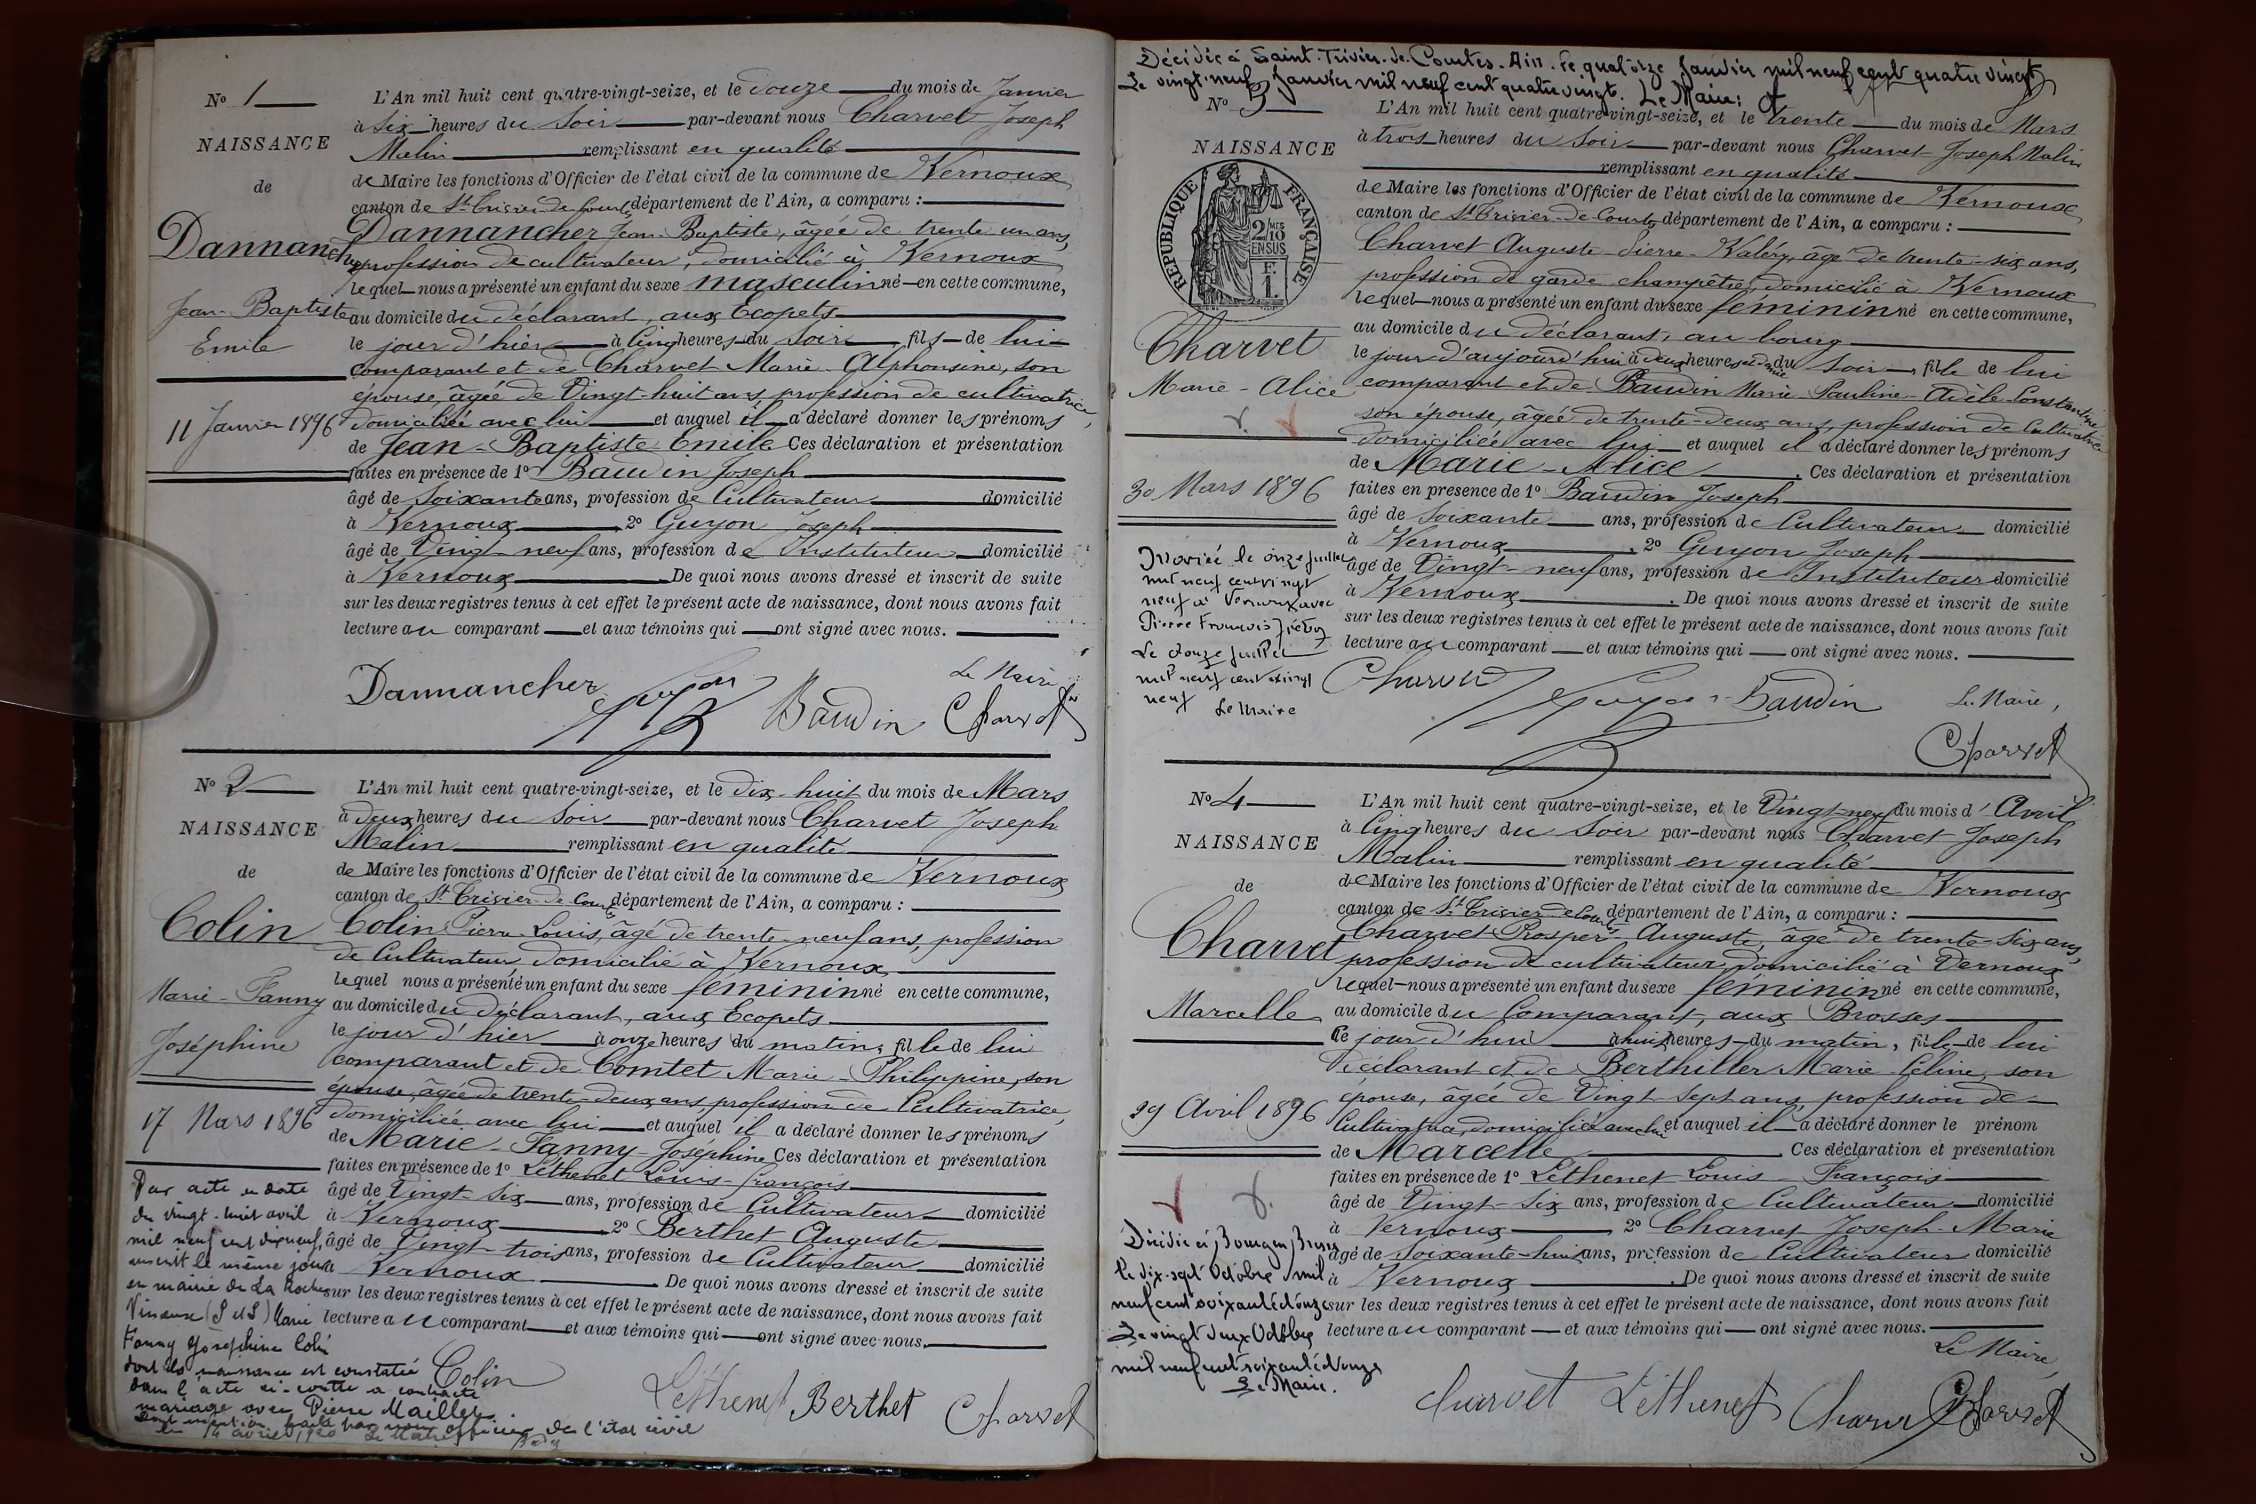 N° 1
NAISSANCE
de
Dannancher
Jean-Baptiste
Emile
11 Janvier 1896
L'An mil huit cent quatre-vingt-seize, et le douze du mois de Janvier
à six heures du soir par-devant nous Charvet Joseph
Malin remplissant en qualité
de Maire les fonctions d'Officier de l'état civil de la commune de Vernoux
canton de St Trivier-de-Courtes département de l'Ain, a comparu :
Dannancher Jean-Baptiste, âgée de trente un ans,
profession de cultivateur, domicilié à Vernoux
lequel nous a présenté un enfant du sexe masculin né en cette commune,
au domicile du déclarant, aux Ecopets
le jour d'hier à cinq heures du soir, fils de lui
comparant et de Charvet Marie Alphonsine, son
épouse, âgée de vingt-huit ans, profession de cultivatrice,
domiciliée avec lui et auquel il a déclaré donner les prénoms
de Jean-Baptiste Emile Ces déclaration et présentation
faites en présence de 1° Baudin Joseph
âgé de soixante ans, profession de Cultivateur domicilié
à Vernoux 2° Guyon Joseph
âgé de Vingt-neuf ans, profession de Instituteur domicilié
à Vernoux De quoi nous avons dressé et inscrit de suite
sur les deux registres tenus à cet effet le présent acte de naissance, dont nous avons fait
lecture au comparant et aux témoins qui ont signé avec nous.
Le Maire
Dannancher Guyon Baudin Charvet
N° 2
NAISSANCE
de
Colin
Marie-Fanny
Joséphine
17 Mars 1896
Par acte en date
du vingt-huit avril
mil neuf cent dix neuf,
inscrit le même jour
en mairie de La Roche
Vineuse (S et L) Marie
Fanny Joséphine Colin
dont la naissance est constatée
dans l'acte ci-contre a contracté
mariage avec Pierre Maillet
Dont mention faite par nous officier de l'état civil
L'An mil huit cent quatre-vingt-seize, et le dix-huit du mois de Mars
à deux heures du soir par-devant nous Charvet Joseph
Malin remplissant en qualité
de Maire les fonctions d'Officier de l'état civil de la commune de Vernoux
canton de St Trivier-de-Courtes département de l'Ain, a comparu :
Colin Pierre Louis, âgé de trente-neuf ans, profession
de Cultivateur domicilié à Vernoux
lequel nous a présenté un enfant du sexe féminin né en cette commune,
au domicile du déclarant, aux Ecopets
le jour d'hier à onze heures du matin, fille de lui
comparant et de Comtet Marie-Philippine, son
épouse, âgée de trente-deux ans, profession de Cultivatrice,
domiciliée avec lui et auquel il a déclaré donner les prénoms
de Marie-Fanny-Joséphine Ces déclaration et présentation
faites en présence de 1° Léthenet Louis-François
âgé de Vingt-six ans, profession de Cultivateur domicilié
à Vernoux 2° Berthet Auguste
âgé de Vingt-trois ans, profession de Cultivateur domicilié
à Vernoux De quoi nous avons dressé et inscrit de suite
sur les deux registres tenus à cet effet le présent acte de naissance, dont nous avons fait
lecture au comparant et aux témoins qui ont signé avec nous.
Colin Léthenet Berthet Charvet
Décédée à Saint-Trivier-de-Courtes-Ain-le quatorze Janvier mil neuf cent quatre vingt
Le vingt-neuf Janvier mil neuf cent quatre vingt. Le Maire:
N° 3
NAISSANCE
RÉPUBLIQUE FRANÇAISE
2/10 EN SUS
F. 1
Charvet
Marie-Alice
30 Mars 1896
Mariée le onze Juillet
mil neuf cent vingt
neuf à Vernoux avec
Pierre François
Le douze Juillet
mil neuf cent vingt
neuf Le Maire
L'An mil huit cent quatre-vingt-seize, et le trente du mois de Mars
à trois heures du soir par-devant nous Charvet Joseph Malin
remplissant en qualité
de Maire les fonctions d'Officier de l'état civil de la commune de Vernoux
canton de St Trivier-de-Courtes département de l'Ain, a comparu :
Charvet Auguste-Pierre-Valéry, âgé de trente-six ans,
profession de garde champêtre, domicilié à Vernoux
lequel nous a présenté un enfant du sexe féminin né en cette commune,
au domicile du déclarant, au bourg
le jour d'aujourd'hui à deux heures et demie du soir, fille de lui
comparant et de Baudin Marie-Pauline-Adèle-Constantine
son épouse, âgée de trente-deux ans, profession de Cultivatrice
domiciliée avec lui et auquel il a déclaré donner les prénoms
de Marie-Alice. Ces déclaration et présentation
faites en présence de 1° Baudin Joseph
âgé de soixante ans, profession de Cultivateur domicilié
à Vernoux, 2° Guyon Joseph
âgé de Vingt-neuf ans, profession de Instituteur domicilié
à Vernoux. De quoi nous avons dressé et inscrit de suite
sur les deux registres tenus à cet effet le présent acte de naissance, dont nous avons fait
lecture au comparant et aux témoins qui ont signé avec nous.
Charvet Guyon Baudin Le Maire,
Charvet
N° 4
NAISSANCE
de
Charvet
Marcelle
29 Avril 1896
Décédée à Bourg en Bresse
le dix-sept Octobre mil
neuf cent soixante et douze
Le vingt deux Octobre
mil neuf cent soixante et douze
Le Maire.
L'An mil huit cent quatre-vingt-seize, et le Vingt-neuf du mois d'Avril
à cinq heures du soir par-devant nous Charvet Joseph
Malin remplissant en qualité
de Maire les fonctions d'Officier de l'état civil de la commune de Vernoux
canton de St Trivier de Courtes département de l'Ain, a comparu :
Charvet Prosper Auguste, âgé de trente-six ans,
profession de cultivateur, domicilié à Vernoux
lequel nous a présenté un enfant du sexe féminin né en cette commune,
au domicile du Comparant, aux Brosses
ce jour d'hui à huit heures du matin, fille de lui
déclarant et de Berthiller Marie-Céline, son
épouse, âgée de Vingt-sept ans, profession de
Cultivatrice, domiciliée avec lui et auquel il a déclaré donner le prénom
de Marcelle. Ces déclaration et présentation
faites en présence de 1° Léthenet Louis-François
âgé de Vingt-six ans, profession de Cultivateur domicilié
à Vernoux 2° Charvet Joseph-Marie
âgé de soixante-huit ans, profession de Cultivateur domicilié
à Vernoux. De quoi nous avons dressé et inscrit de suite
sur les deux registres tenus à cet effet le présent acte de naissance, dont nous avons fait
lecture au comparant et aux témoins qui ont signé avec nous.
Le Maire,
Charvet Léthenet Charvet Charvet